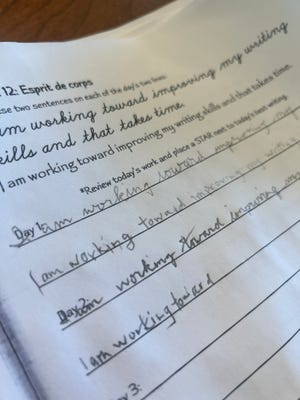 12: Esprit de corps
se two sentences on each of the day's two lines.
am working toward improving my writing
kills and that takes time.
I am working toward improving my writing skills and that takes time.
*Review today's work and place a STAR next to today's best writing.
Day 1: I am working toward improving my
I am working toward improving my writing
Day 2: I am working toward improving
I am working toward
3: